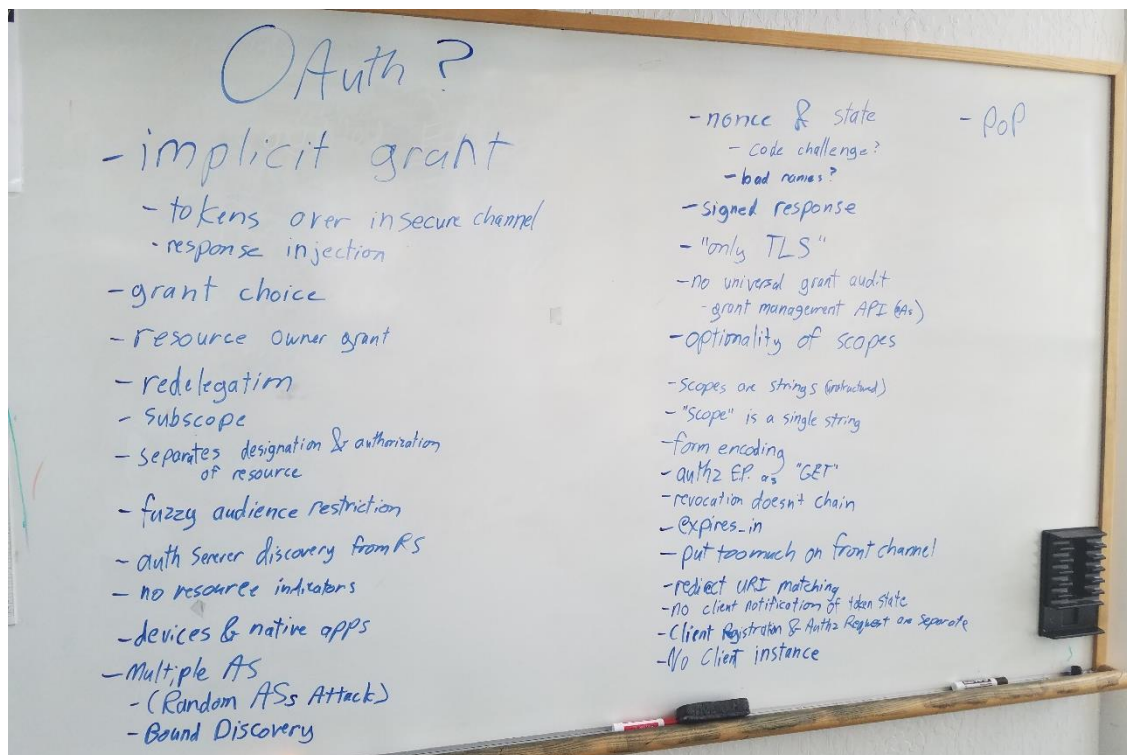 OAuth?
- implicit grant
- tokens over insecure channel
- response injection
- grant choice
- resource owner grant
- redelegation
- subscope
- separates designation & authorization
of resource
- fuzzy audience restriction
- auth server discovery from RS
- no resource indicators
- devices & native apps
- Multiple AS
- (Random ASs Attack)
- Bound Discovery
- nonce & state
- code challenge?
- bad names?
- signed response
- "only TLS"
- no universal grant audit
- grant management API
- optionality of scopes
- scopes are strings
- "scope" is a single string
- form encoding
- authz EP. as "GET"
- revocation doesn't chain
- expires_in
- put too much on front channel
- redirect URI matching
- no client notification of token state
- Client Registration & Authz Request are separate
- No Client instance
- PoP